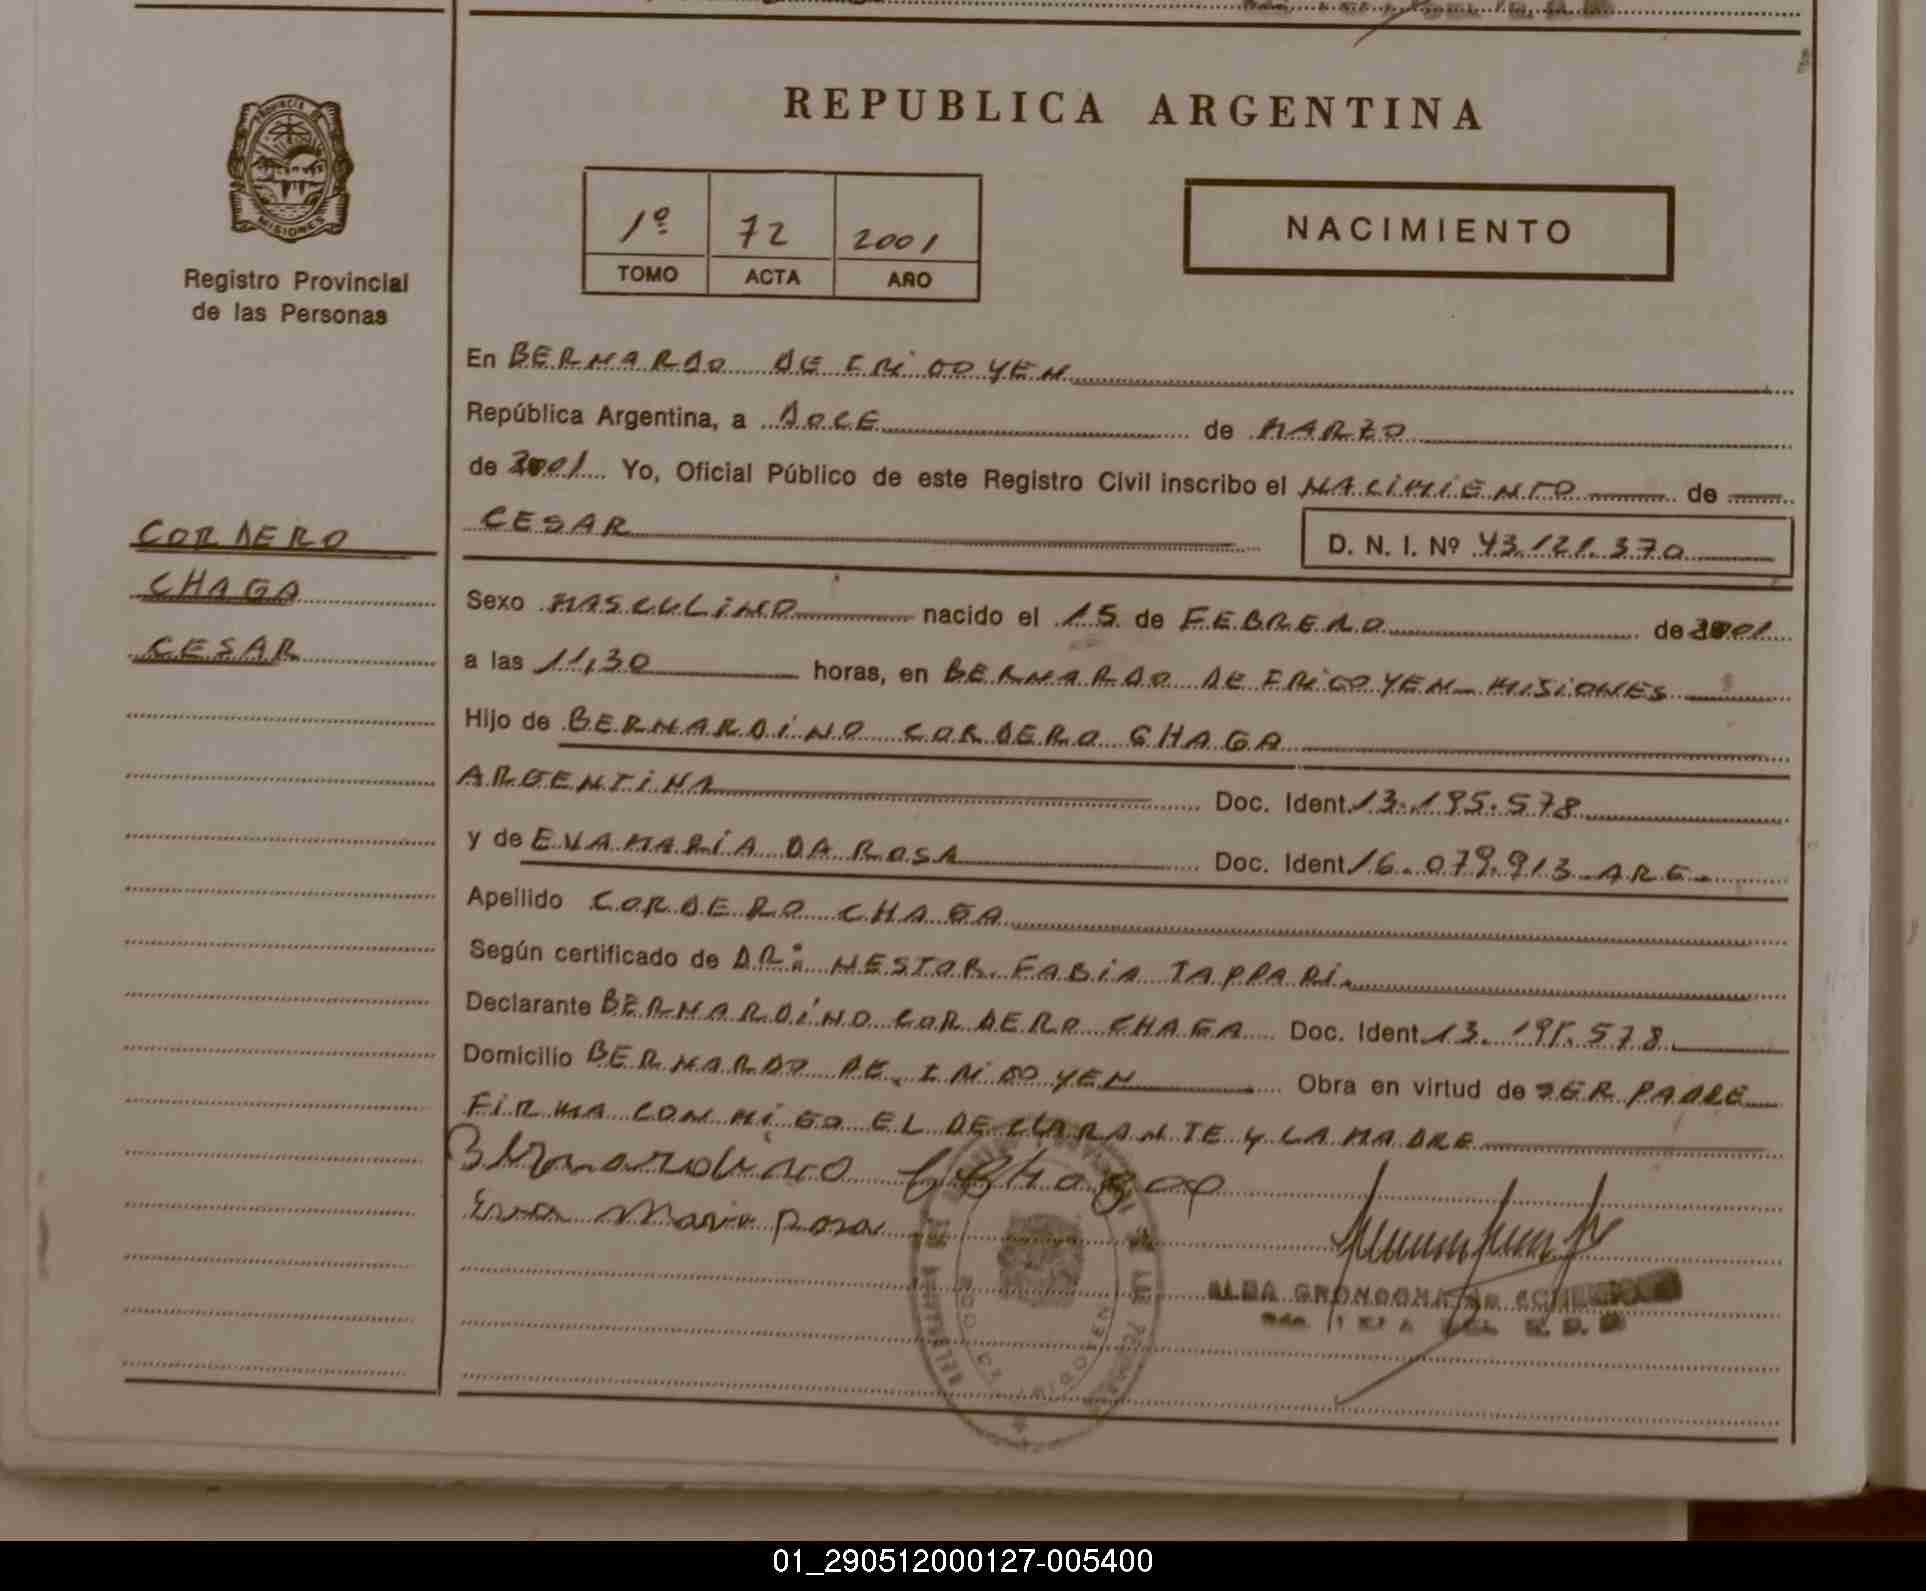 REPUBLICA ARGENTINA
PROVINCIA DE
MISIONES
Registro Provincial
de las Personas
1º 72 2001
TOMO ACTA AÑO
NACIMIENTO
En BERNARDO DE IRIGOYEN
República Argentina, a DOCE de MARZO
de 2001 Yo, Oficial Público de este Registro Civil inscribo el NACIMIENTO de
CESAR D. N. I. Nº 43.121.370
CORDERO
CHAGA
CESAR
Sexo MASCULINO nacido el 15 de FEBRERO de 2001
a las 11,30 horas, en BERNARDO DE IRIGOYEN - MISIONES
Hijo de BERNARDINO CORDERO CHAGA
ARGENTINA Doc. Ident. 13.195.578
y de EVA MARÍA DA ROSA Doc. Ident. 16.079.913 ARG.
Apellido CORDERO CHAGA
Según certificado de DR: NESTOR FABIA TAPPARI
Declarante BERNARDINO CORDERO CHAGA Doc. Ident. 13.195.578
Domicilio BERNARDO DE IRIGOYEN Obra en virtud de SER PADRE
FIRMA CONMIGO EL DECLARANTE Y LA MADRE
Bernardino
Eva Maria Rosa
ALBA
01_290512000127-005400